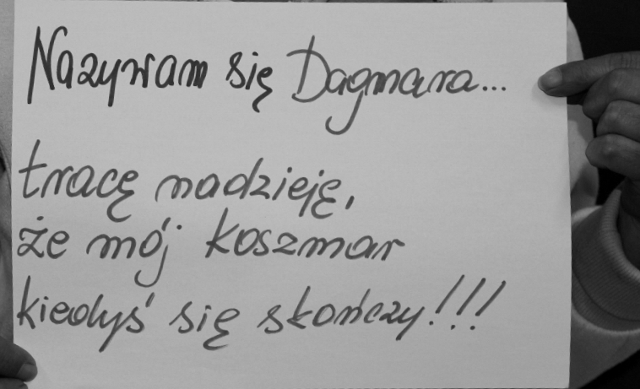 Nazywam się Dagmara...
tracę nadzieję,
że mój koszmar
kiedyś się skończy!!!